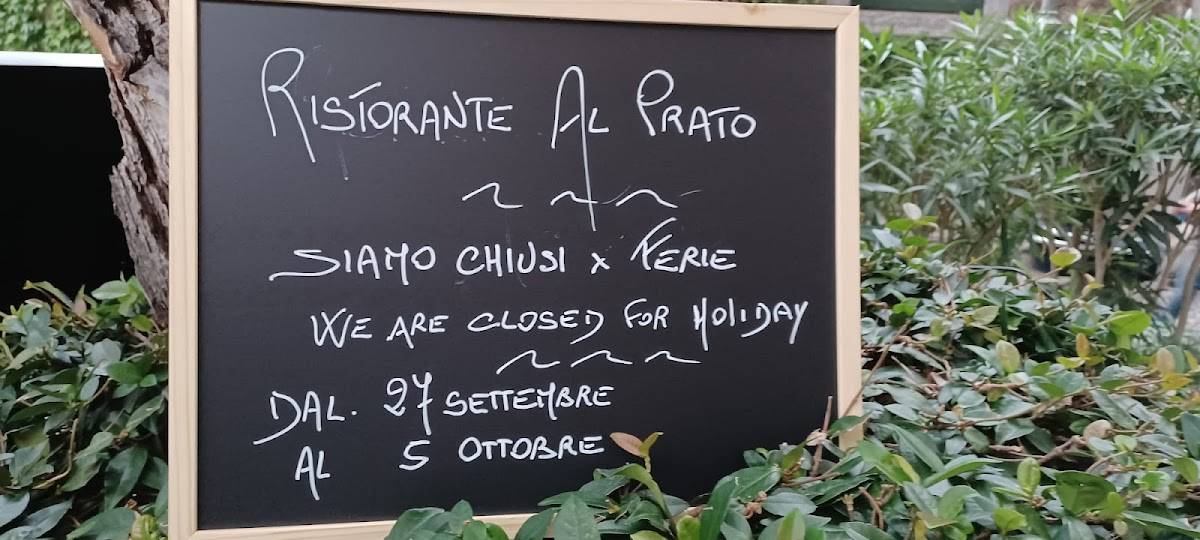 RISTORANTE AL PRATO
SIAMO CHIUSI x FERIE
WE ARE CLOSED FOR HOLIDAY
DAL. 27 SETTEMBRE
AL 5 OTTOBRE